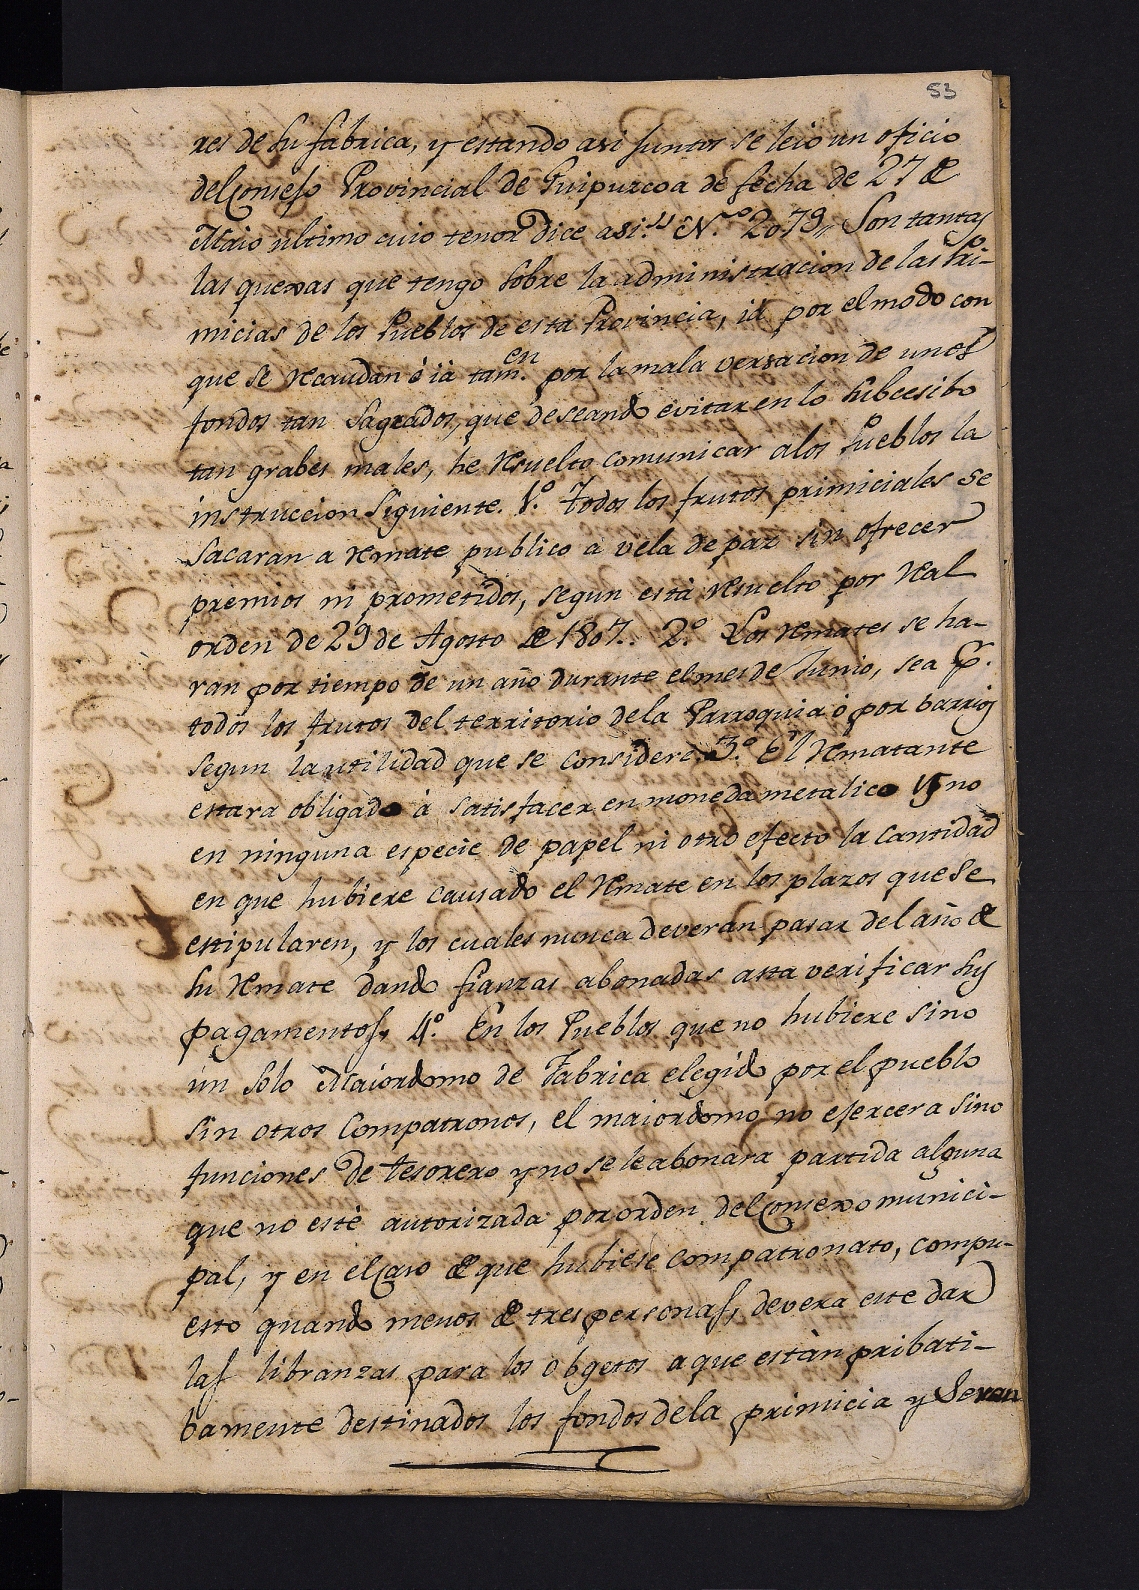 53
res de su fabrica, y estando asi juntos se leió un oficio
del Consejo Provincial de Guipuzcoa de fecha de 27 de
Maio ultimo cuio tenor dice asi." N.º 2079,, Son tantas
las quexas que tengo sobre la administracion de las Pri-
micias de los Pueblos de esta Provincia, iá por el modo con
que se Recaudan ó iá tam.en por la mala versacion de unos
fondos tan sagrados, que deseando evitar en lo subcesibo
tan grabes males, he Resuelto comunicar a los Pueblos la
instruccion siguiente. 1.º Todos los frutos primiciales se
sacaran a Remate publico a vela de paz sin ofrecer
premios ni prometidos, segun está Resuelto por Real
orden de 29 de Agosto de 1807. 2.º Los Remates se ha-
ran por tiempo de un año durante el mes de Junio, sea p.
todos los frutos del territorio de la Parroquia ó por barrios
segun la utilidad que se considere. 3.º El Rematante
estara obligado à satisfacer en moneda metalico y no
en ninguna especie de papel ni otro efecto la cantidad
en que hubiere causado el Remate en los plazos que se
estipularen, y los cuales nunca deveran pasar del año de
su Remate dando fianzas abonadas asta verificar sus
pagamentos, 4.º En los Pueblos que no hubiere sino
un solo Maiordomo de Fabrica elegido por el pueblo
sin otros compatronos, el maiordomo no ejercera sino
funciones de tesorero y no se le abonara partida alguna
que no esté autorizada por orden del Consexo munici-
pal, y en el caso de que hubiese compatronato, compu-
esto quando menos de tres personas, devera este dar
las libranzas para los obgetos a que están pribati-
bamente destinados los fondos de la primicia y seran